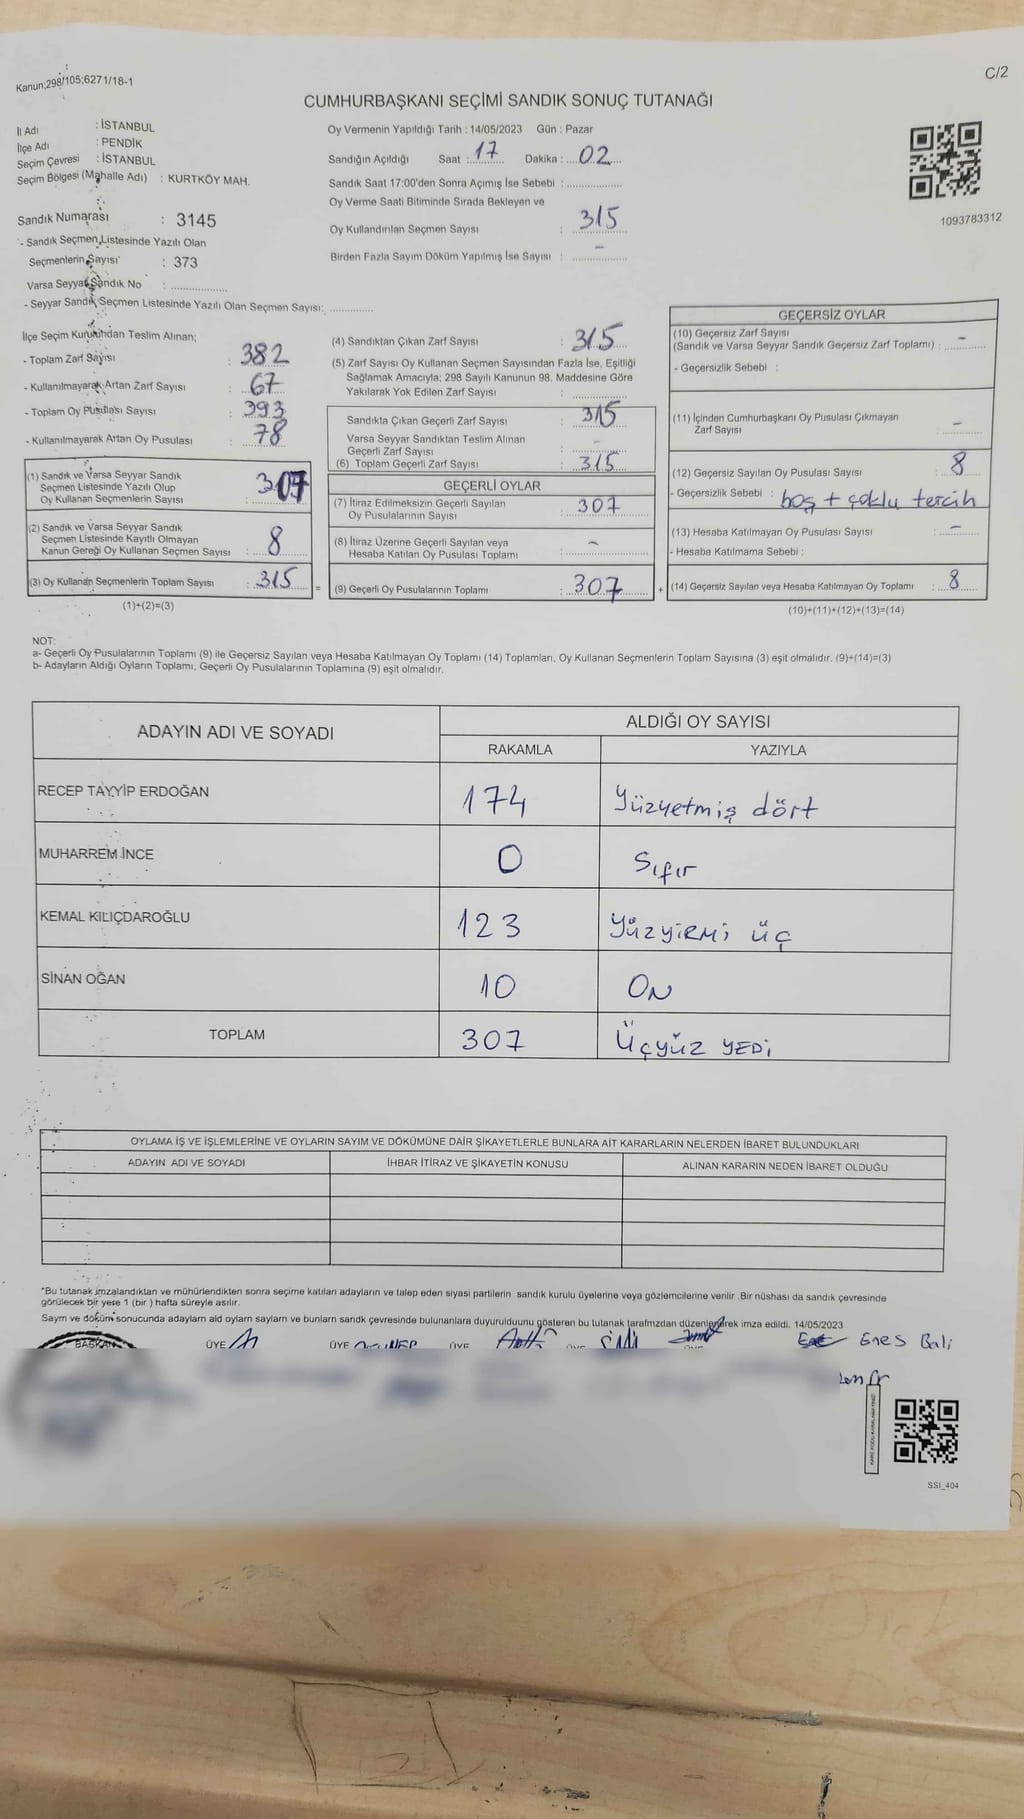 Kanun;298/105;6271/18-1
C/2
CUMHURBAŞKANI SEÇİMİ SANDIK SONUÇ TUTANAĞI
İl Adı : İSTANBUL
İlçe Adı : PENDİK
Seçim Çevresi : İSTANBUL
Seçim Bölgesi (Mahalle Adı) : KURTKÖY MAH.
Sandık Numarası : 3145
- Sandık Seçmen Listesinde Yazılı Olan
Seçmenlerin Sayısı : 373
Varsa Seyyar Sandık No :
- Seyyar Sandık Seçmen Listesinde Yazılı Olan Seçmen Sayısı:
Oy Vermenin Yapıldığı Tarih : 14/05/2023 Gün : Pazar
Sandığın Açıldığı Saat : 17 Dakika : 02
Sandık Saat 17:00'den Sonra Açımış İse Sebebi :
Oy Verme Saati Bitiminde Sırada Bekleyen ve
Oy Kullandırılan Seçmen Sayısı : 315
Birden Fazla Sayım Döküm Yapılmış İse Sayısı : -
1093783312
İlçe Seçim Kurulundan Teslim Alınan;
- Toplam Zarf Sayısı : 382
- Kullanılmayarak Artan Zarf Sayısı : 67
- Toplam Oy Pusulası Sayısı : 393
- Kullanılmayarak Artan Oy Pusulası : 78
(1) Sandık ve Varsa Seyyar Sandık
Seçmen Listesinde Yazılı Olup
Oy Kullanan Seçmenlerin Sayısı : 307
(2) Sandık ve Varsa Seyyar Sandık
Seçmen Listesinde Kayıtlı Olmayan
Kanun Gereği Oy Kullanan Seçmen Sayısı : 8
(3) Oy Kullanan Seçmenlerin Toplam Sayısı : 315
(1)+(2)=(3)
(4) Sandıktan Çıkan Zarf Sayısı : 315
(5) Zarf Sayısı Oy Kullanan Seçmen Sayısından Fazla İse, Eşitliği
Sağlamak Amacıyla; 298 Sayılı Kanunun 98. Maddesine Göre
Yakılarak Yok Edilen Zarf Sayısı :
Sandıkta Çıkan Geçerli Zarf Sayısı : 315
Varsa Seyyar Sandıktan Teslim Alınan
Geçerli Zarf Sayısı : -
(6) Toplam Geçerli Zarf Sayısı : 315
GEÇERLİ OYLAR
(7) İtiraz Edilmeksizin Geçerli Sayılan
Oy Pusulalarının Sayısı : 307
(8) İtiraz Üzerine Geçerli Sayılan veya
Hesaba Katılan Oy Pusulası Toplamı : -
= (9) Geçerli Oy Pusulalarının Toplamı : 307
GEÇERSİZ OYLAR
(10) Geçersiz Zarf Sayısı
(Sandık ve Varsa Seyyar Sandık Geçersiz Zarf Toplamı) : -
- Geçersizlik Sebebi :
(11) İçinden Cumhurbaşkanı Oy Pusulası Çıkmayan
Zarf Sayısı : -
(12) Geçersiz Sayılan Oy Pusulası Sayısı : 8
- Geçersizlik Sebebi : boş + çoklu tercih
(13) Hesaba Katılmayan Oy Pusulası Sayısı : -
- Hesaba Katılmama Sebebi :
+ (14) Geçersiz Sayılan veya Hesaba Katılmayan Oy Toplamı : 8
(10)+(11)+(12)+(13)=(14)
NOT:
a- Geçerli Oy Pusulalarının Toplamı (9) ile Geçersiz Sayılan veya Hesaba Katılmayan Oy Toplamı (14) Toplamları, Oy Kullanan Seçmenlerin Toplam Sayısına (3) eşit olmalıdır. (9)+(14)=(3)
b- Adayların Aldığı Oyların Toplamı, Geçerli Oy Pusulalarının Toplamına (9) eşit olmalıdır.
ADAYIN ADI VE SOYADI ALDIĞI OY SAYISI
RAKAMLA YAZIYLA
RECEP TAYYİP ERDOĞAN 174 Yüzyetmiş dört
MUHARREM İNCE 0 Sıfır
KEMAL KILIÇDAROĞLU 123 Yüzyirmi üç
SİNAN OĞAN 10 ON
TOPLAM 307 Üçyüz YEDİ
OYLAMA İŞ VE İŞLEMLERİNE VE OYLARIN SAYIM VE DÖKÜMÜNE DAİR ŞİKAYETLERLE BUNLARA AİT KARARLARIN NELERDEN İBARET BULUNDUKLARI
ADAYIN ADI VE SOYADI İHBAR İTİRAZ VE ŞİKAYETİN KONUSU ALINAN KARARIN NEDEN İBARET OLDUĞU
*Bu tutanak imzalandıktan ve mühürlendikten sonra seçime katılan adayların ve talep eden siyasi partilerin sandık kurulu üyelerine veya gözlemcilerine verilir .Bir nüshası da sandık çevresinde
görülecek bir yere 1 (bir ) hafta süreyle asılır.
Sayım ve döküm sonucunda adayların ald oyların sayların ve bunların sandk çevresinde bulunanlara duyurulduunu gösteren bu tutanak tarafmzdan düzenlenerek imza edildi. 14/05/2023
BAŞKAN ÜYE ÜYE ÜYE Enes Bali
SSI_404